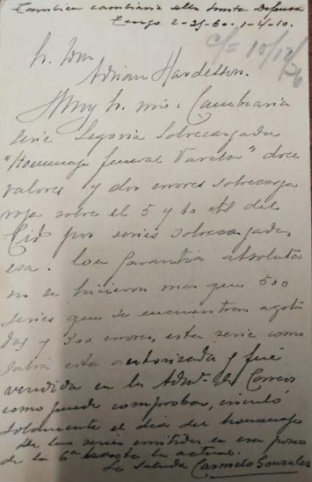 También cambiaría sellos Junta Defensa
Tengo 2-25-60-1-4-10.
c/= 10/12/36
Sr. Don
Adrian Hardelson.
Muy Sr. mio. Cambiaria
serie Segovia Sobrecargados
"Homenaje General Varela" doce
valores y dos errores sobrecarga
roja sobre el 5 y 10 cts del
Cid por series sobrecargadas
esa. Con garantia absoluta
no se hicieron mas que 500
series que se encuentran agota
das y 300 errores, esta serie como
sabrá esta autorizada y fué
vendida en la Admn. de Correos
como puede comprobar, circuló
solamente el dia del homenaje
de las series emitidas en esa
de la 6ª hasta la actual.
Le saluda Carmelo Gonzalez